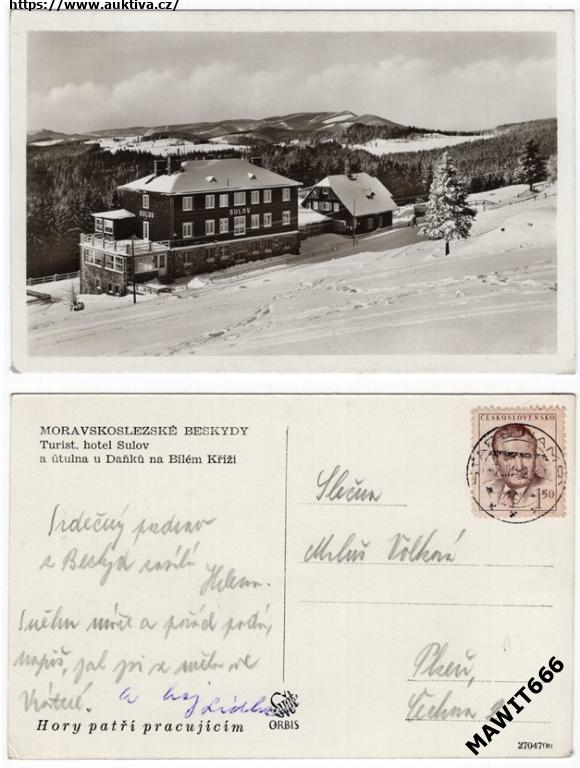 https://www.auktiva.cz/
SULOV
SULOV
MORAVSKOSLEZSKÉ BESKYDY
Turist. hotel Sulov
a útulna u Daňků na Bílém Kříži
ČESKOSLOVENSKO
1.50
Slečna
Srdečný pozdrav
z Beskyd zasílá
Helena.
Miluš Völková
Sněhu moře a pořád padá,
napiš, jak jsi se měla ve
Vrátné.
a
Lidka
Plzeň,
Hory patří pracujícím
ORBIS
MAWIT666